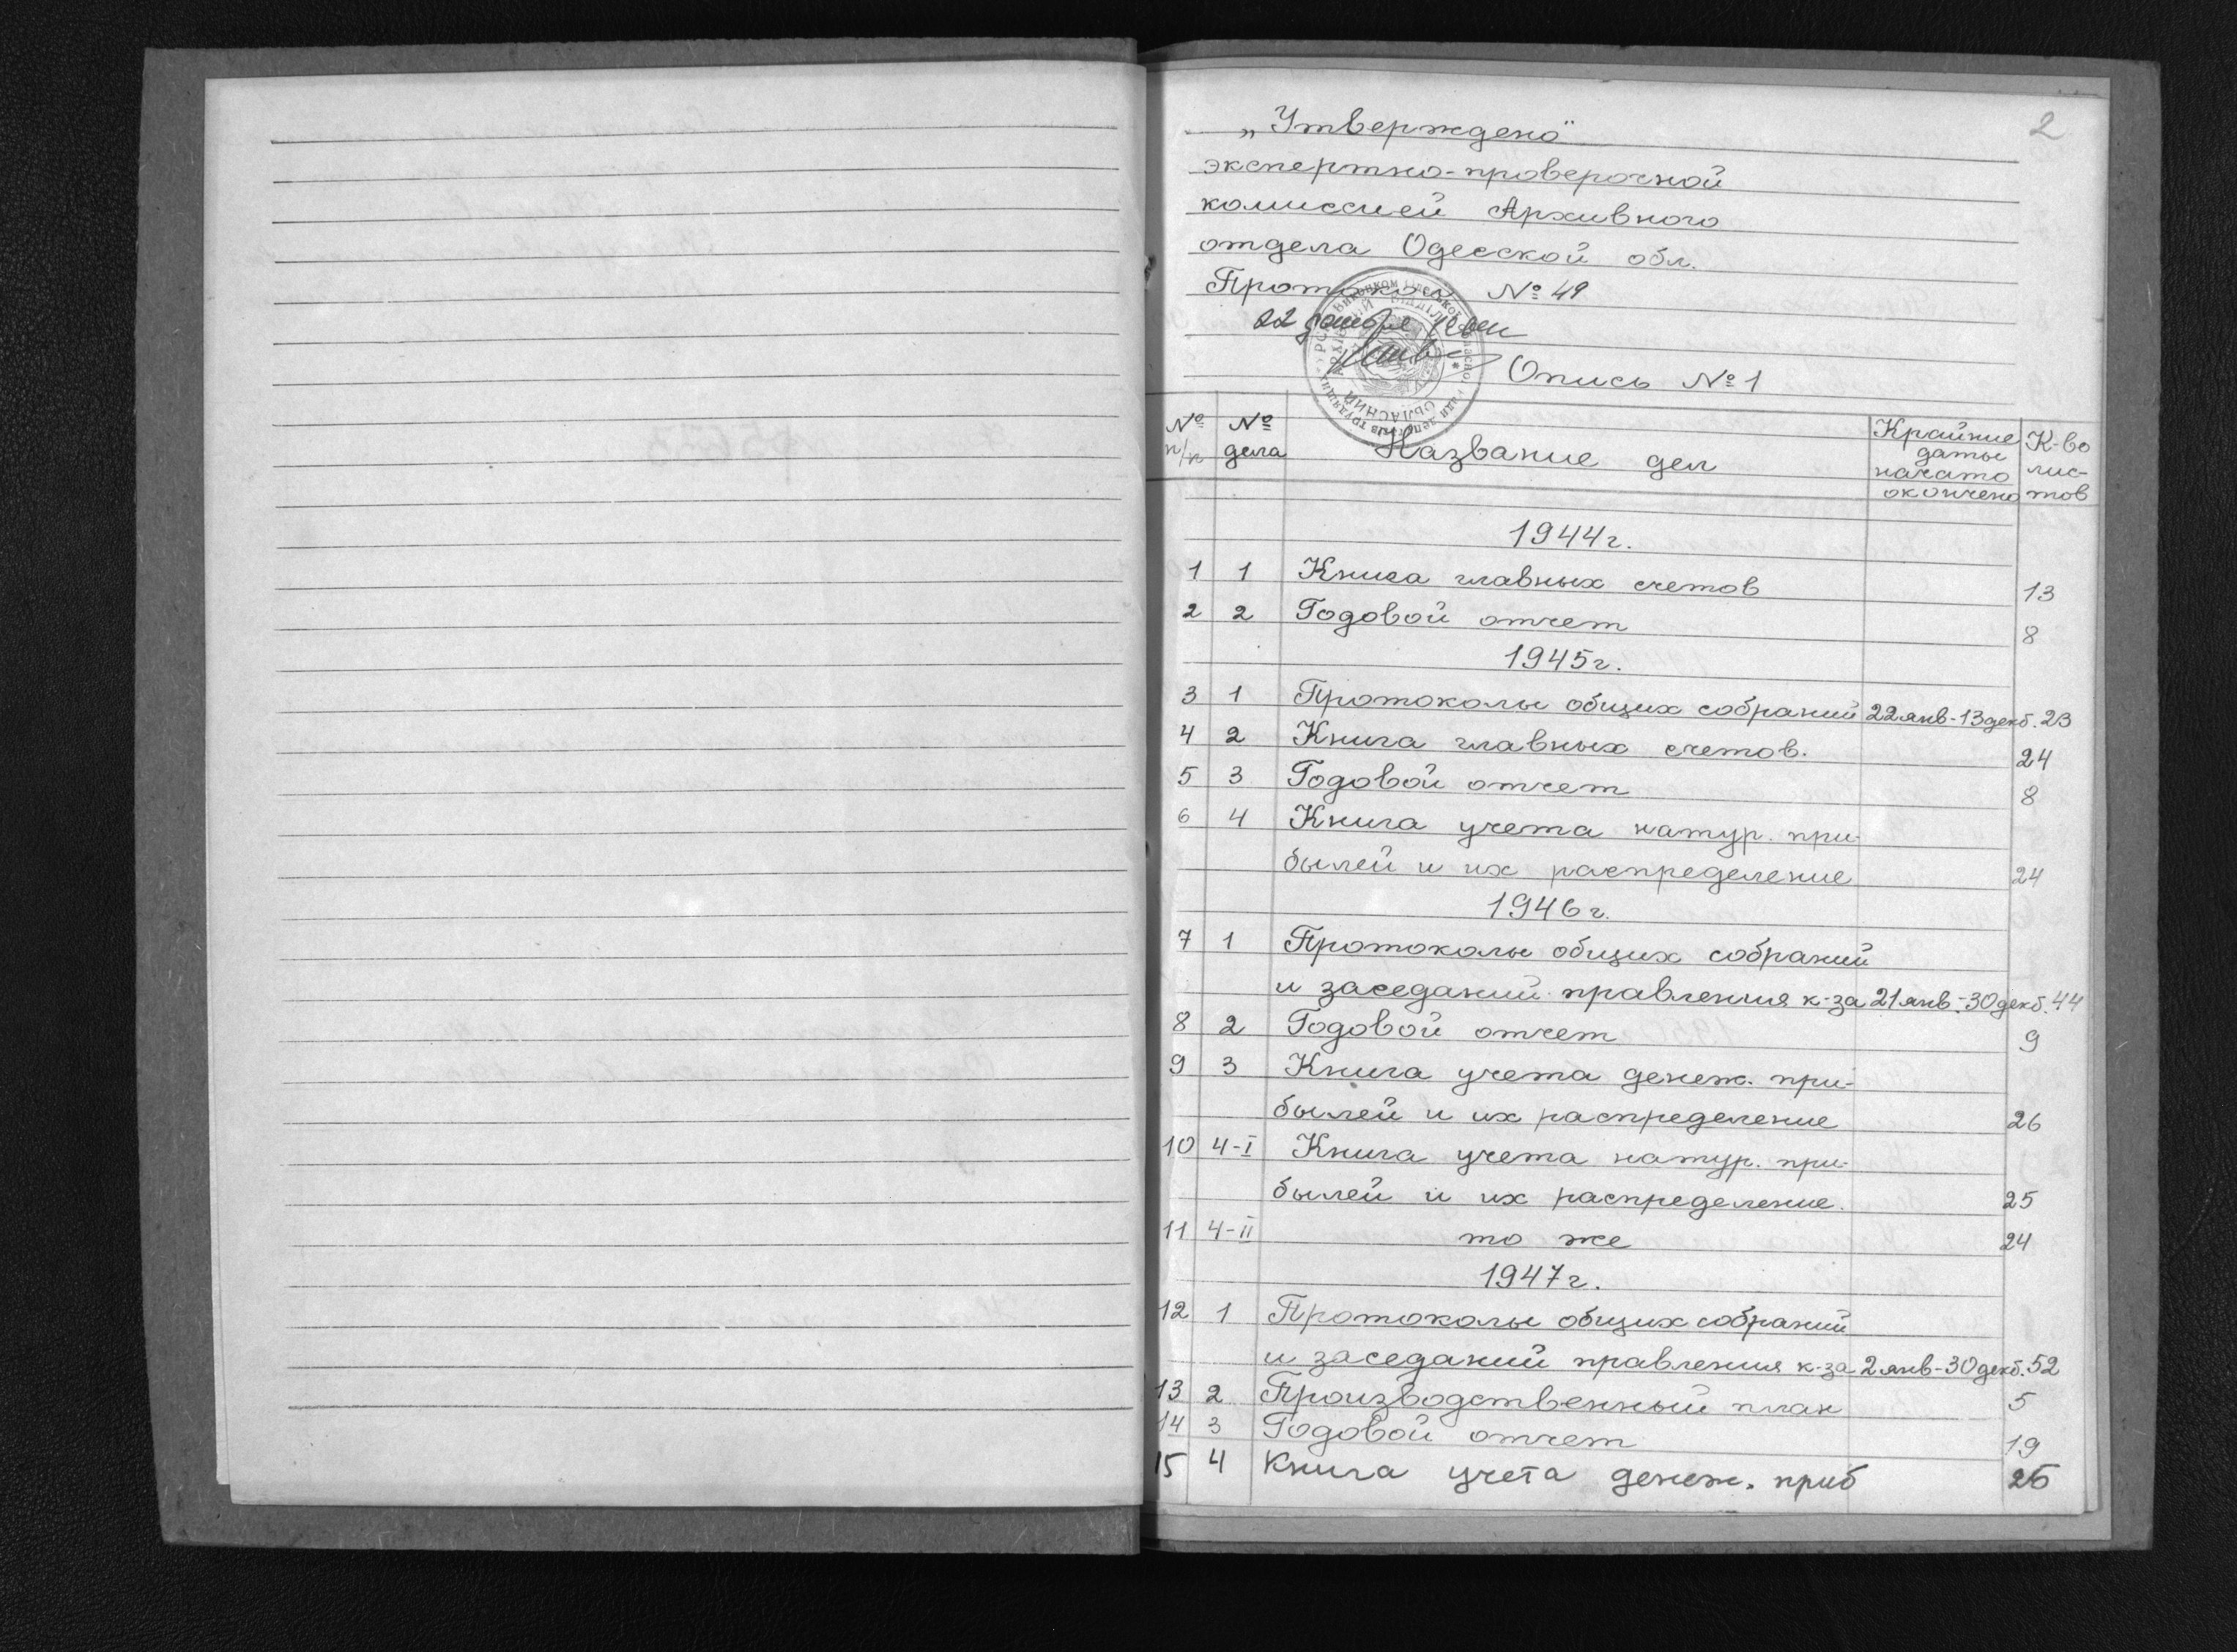 2
„Утверждено"
экспертно-проверочной
комиссией Архивного
отдела Одесской обл.
Протокол № 49
22
Опись № 1
№ п/п № дела Название дел Крайние даты начато окончено К-во лис-тов
1944 г.
1 1 Книга главных счетов 13
2 2 Годовой отчет 8
1945 г.
3 1 Протоколы общих собраний 22 янв-13 декб. 23
4 2 Книга главных счетов. 24
5 3 Годовой отчет 8
6 4 Книга учета натур. при-
былей и их распределение 24
1946 г.
7 1 Протоколы общих собраний
и заседаний правления к-за 21 янв.-30 декб. 44
8 2 Годовой отчет 9
9 3 Книга учета денеж. при-
былей и их распределение 26
10 4-I Книга учета натур. при-
былей и их распределение. 25
11 4-II то же 24
1947 г.
12 1 Протоколы общих собраний
и заседаний правления к-за 2 янв-30 декб. 52
13 2 Производственный план 5
14 3 Годовой отчет 19
15 4 Книга учета денеж. приб 26